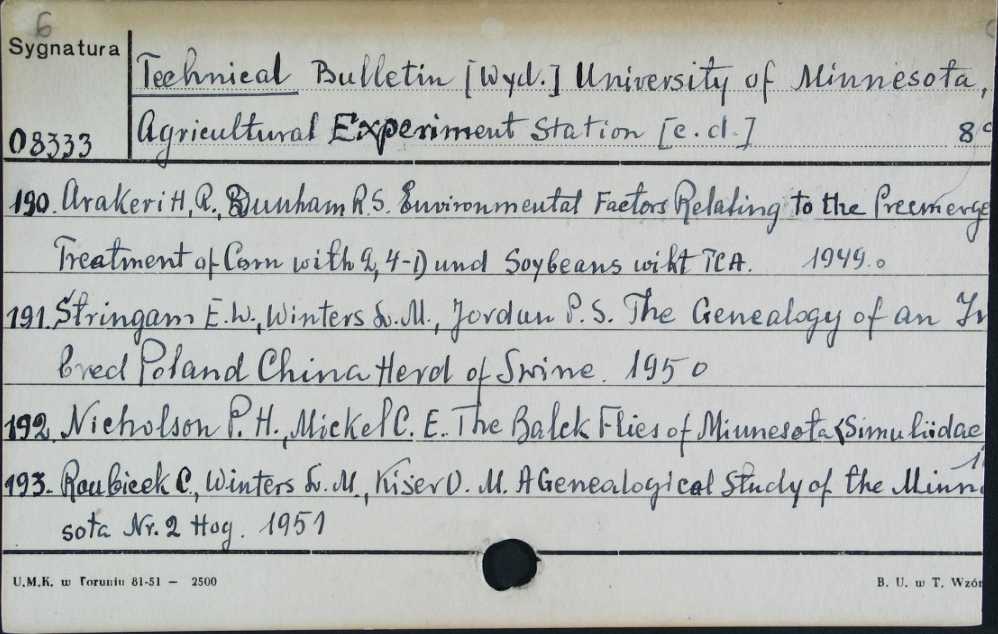 6
Sygnatura
Technical Bulletin [Wyd.] University of Minnesota,
08333 Agricultural Experiment Station [c.d.] 8°
190. Arakeri H. R., Dunham R.S. Environmental Factors Relating to the Preemerge
Treatment of Corn with 2,4-D und Soybeans wiht TCA. 1949.
191. Stringam E.W., Winters L.M., Jordun P.S. The Genealogy of an In
bred Poland China Herd of Swine. 1950
192. Nicholson P.H., Mickel C.E. The Balck Flies of Minnesota (Simuliidae
193. Roubicek C., Winters L.M., Kiser O.M. A Genealogical Study of the Minn
sota Nr. 2 Hog. 1951
U.M.K. w Toruniu 81-51 — 2500
B. U. w T. Wzór